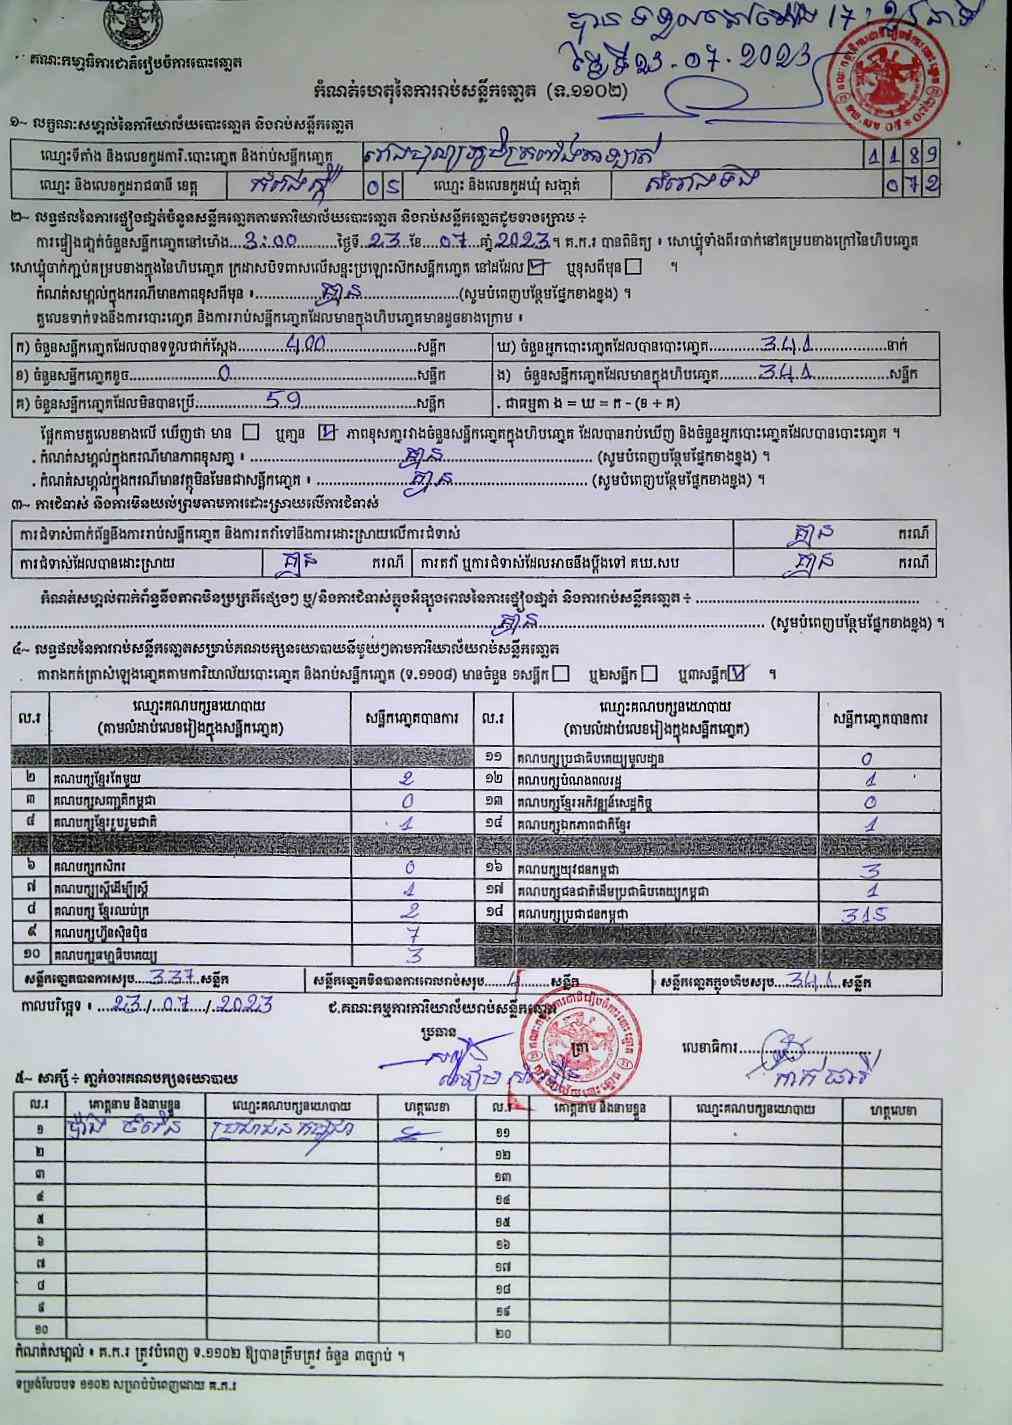 បានទទួលនៅម៉ោង 17:25 នាទី
ថ្ងៃទី 23.07.2023
គណៈកម្មាធិការជាតិរៀបចំការបោះឆ្នោត
កំណត់ហេតុនៃការរាប់សន្លឹកឆ្នោត (ទ.១១០២)
១~ លក្ខណៈសម្គាល់នៃការិយាល័យបោះឆ្នោត និងរាប់សន្លឹកឆ្នោត
ឈ្មោះទីតាំង និងលេខកូដការិ.បោះឆ្នោត និងរាប់សន្លឹកឆ្នោត 1189
ឈ្មោះ និងលេខកូដរាជធានី ខេត្ត កំពង់ស្ពឺ 05 ឈ្មោះ និងលេខកូដឃុំ សង្កាត់ សំរោងទង 072
២~ លទ្ធផលនៃការផ្ទៀងផ្ទាត់ចំនួនសន្លឹកឆ្នោតតាមការិយាល័យបោះឆ្នោត និងរាប់សន្លឹកឆ្នោតដូចខាងក្រោម ÷
ការផ្ទៀងផ្ទាត់ចំនួនសន្លឹកឆ្នោតនៅម៉ោង...3:00...ថ្ងៃទី...23...ខែ...07...ឆ្នាំ 2023។ គ.ក.រ បានពិនិត្យ ៖ សោឃ្មុំទាំងពីរចាក់នៅគម្របខាងក្រៅនៃហិបឆ្នោត
សោឃ្មុំចាក់ភ្ជាប់គម្របខាងក្នុងនៃហិបឆ្នោត ក្រដាសបិទពាសលើសន្ទះប្រឡោះស៊កសន្លឹកឆ្នោត នៅដដែល ☑ ឬខុសពីមុន ☐ ។
កំណត់សម្គាល់ក្នុងករណីមានភាពខុសពីមុន ៖ គ្មាន (សូមបំពេញបន្ថែមផ្នែកខាងខ្នង) ។
តួលេខទាក់ទងនឹងការបោះឆ្នោត និងការរាប់សន្លឹកឆ្នោតដែលមានក្នុងហិបឆ្នោតមានដូចខាងក្រោម ៖
ក) ចំនួនសន្លឹកឆ្នោតដែលបានទទួលជាក់ស្តែង...400...សន្លឹក ឃ) ចំនួនអ្នកបោះឆ្នោតដែលបានបោះឆ្នោត...341...នាក់
ខ) ចំនួនសន្លឹកឆ្នោតខូច...0...សន្លឹក ង) ចំនួនសន្លឹកឆ្នោតដែលមានក្នុងហិបឆ្នោត...341...សន្លឹក
គ) ចំនួនសន្លឹកឆ្នោតដែលមិនបានប្រើ...59...សន្លឹក . ជាធម្មតា ង = ឃ = ក - (ខ + គ)
ផ្អែកតាមតួលេខខាងលើ ឃើញថា មាន ☐ ឬគ្មាន ☑ ភាពខុសគ្នារវាងចំនួនសន្លឹកឆ្នោតក្នុងហិបឆ្នោត ដែលបានរាប់ឃើញ និងចំនួនអ្នកបោះឆ្នោតដែលបានបោះឆ្នោត ។
. កំណត់សម្គាល់ក្នុងករណីមានភាពខុសគ្នា ៖ គ្មាន (សូមបំពេញបន្ថែមផ្នែកខាងខ្នង) ។
. កំណត់សម្គាល់ក្នុងករណីមានវត្ថុមិនមែនជាសន្លឹកឆ្នោត ៖ គ្មាន (សូមបំពេញបន្ថែមផ្នែកខាងខ្នង) ។
៣~ ការជំទាស់ និងការមិនយល់ព្រមតាមការដោះស្រាយលើការជំទាស់
ការជំទាស់ពាក់ព័ន្ធនឹងការរាប់សន្លឹកឆ្នោត និងការតវ៉ាទៅនឹងការដោះស្រាយលើការជំទាស់ គ្មាន ករណី
ការជំទាស់ដែលបានដោះស្រាយ គ្មាន ករណី ការតវ៉ា ឬការជំទាស់ដែលអាចនឹងប្តឹងទៅ គឃ.សប គ្មាន ករណី
កំណត់សម្គាល់ពាក់ព័ន្ធនឹងភាពមិនប្រក្រតីផ្សេងៗ ឬ/និងការជំទាស់ក្នុងអំឡុងពេលនៃការផ្ទៀងផ្ទាត់ និងការរាប់សន្លឹកឆ្នោត ÷
គ្មាន (សូមបំពេញបន្ថែមផ្នែកខាងខ្នង) ។
៤~ លទ្ធផលនៃការរាប់សន្លឹកឆ្នោតសម្រាប់គណបក្សនយោបាយនីមួយៗតាមការិយាល័យរាប់សន្លឹកឆ្នោត
តារាងកត់ត្រាសំឡេងឆ្នោតតាមការិយាល័យបោះឆ្នោត និងរាប់សន្លឹកឆ្នោត (ទ.១១០៨) មានចំនួន ១សន្លឹក ☐ ឬ២សន្លឹក ☐ ឬ៣សន្លឹក ☑ ។
ល.រ ឈ្មោះគណបក្សនយោបាយ (តាមលំដាប់លេខរៀងក្នុងសន្លឹកឆ្នោត) សន្លឹកឆ្នោតបានការ ល.រ ឈ្មោះគណបក្សនយោបាយ (តាមលំដាប់លេខរៀងក្នុងសន្លឹកឆ្នោត) សន្លឹកឆ្នោតបានការ
១១ គណបក្សប្រជាធិបតេយ្យមូលដ្ឋាន 0
២ គណបក្សខ្មែរតែមួយ 2 ១២ គណបក្សបំណងពលរដ្ឋ 1
៣ គណបក្សសញ្ជាតិកម្ពុជា 0 ១៣ គណបក្សខ្មែរអភិវឌ្ឍន៍សេដ្ឋកិច្ច 0
៤ គណបក្សខ្មែររួបរួមជាតិ 1 ១៤ គណបក្សឯកភាពជាតិខ្មែរ 1
៦ គណបក្សកសិករ 0 ១៦ គណបក្សយុវជនកម្ពុជា 3
៧ គណបក្សស្ត្រីដើម្បីស្ត្រី 1 ១៧ គណបក្សជនជាតិដើមប្រជាធិបតេយ្យកម្ពុជា 1
៨ គណបក្ស ខ្មែរឈប់ក្រ 2 ១៨ គណបក្សប្រជាជនកម្ពុជា 315
៩ គណបក្សហ៊្វុនស៊ិនប៉ិច 7
១០ គណបក្សធម្មាធិបតេយ្យ 3
សន្លឹកឆ្នោតបានការសរុប...337...សន្លឹក សន្លឹកឆ្នោតមិនបានការពេលរាប់សរុប...4...សន្លឹក សន្លឹកឆ្នោតក្នុងហិបសរុប...341...សន្លឹក
កាលបរិច្ឆេទ ៖ 23/07/2023 ជ.គណៈកម្មការការិយាល័យរាប់សន្លឹកឆ្នោត
ប្រធាន
ត្រា លេខាធិការ
៥~ សាក្សី ÷ ភ្នាក់ងារគណបក្សនយោបាយ
ល.រ គោត្តនាម និងនាមខ្លួន ឈ្មោះគណបក្សនយោបាយ ហត្ថលេខា ល.រ គោត្តនាម និងនាមខ្លួន ឈ្មោះគណបក្សនយោបាយ ហត្ថលេខា
១ ប្រជាជនកម្ពុជា ១១
២ ១២
៣ ១៣
៤ ១៤
៥ ១៥
៦ ១៦
៧ ១៧
៨ ១៨
៩ ១៩
១០ ២០
កំណត់សម្គាល់ ៖ គ.ក.រ ត្រូវបំពេញ ទ.១១០២ ឱ្យបានត្រឹមត្រូវ ចំនួន ៣ច្បាប់ ។
ទម្រង់បែបបទ ១១០២ សម្រាប់បំពេញដោយ គ.ក.រ